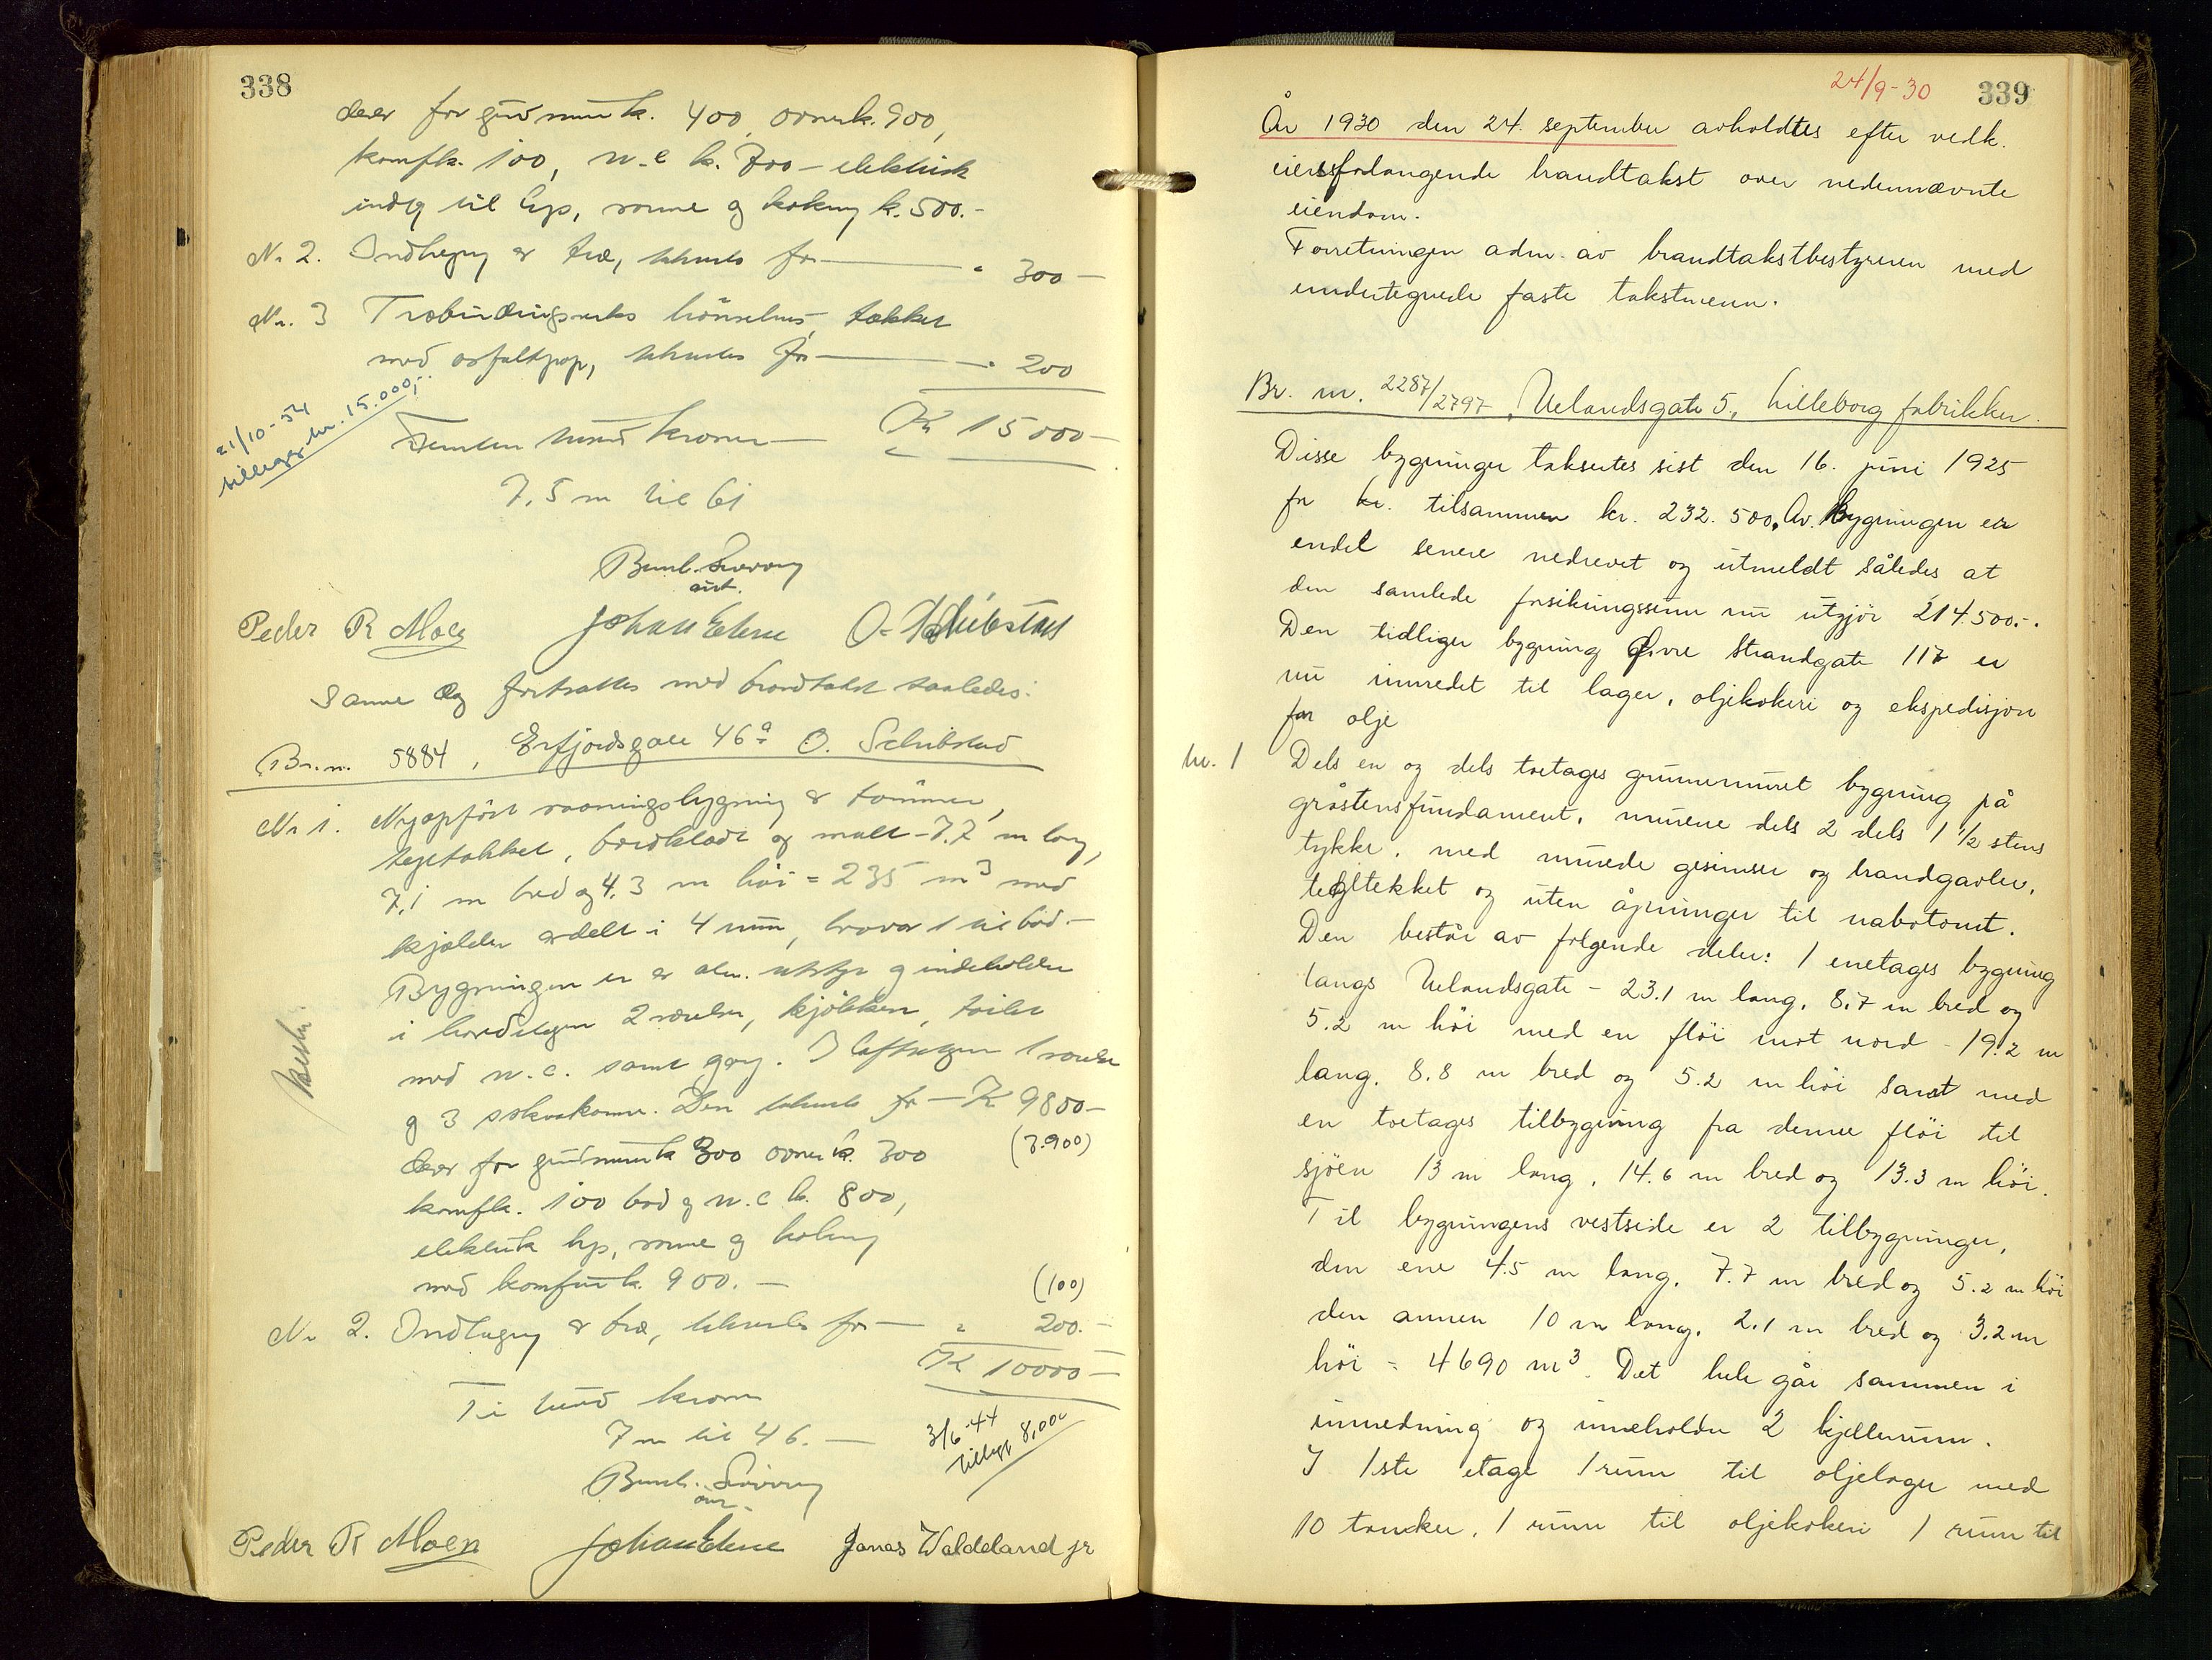 338
derav for grundmur k. 400, ovner k. 900,
komf k. 100, w.c k. 700 – elektrisk
indlg til lys, varme og kokning k. 500.-
Nr 2. Indhegning av træ, takseres for — " 300 —
Nr. 3 Træbindingsverks hönsehus, tækket
med asfaltpap, takseres for — " 200
21/10-54
tillegg kr. 15.000,-
Femten tusind kroner — Kr 15000 —
7,5 m til 61
Peder R Moen Johan Eltene O. Schibstad
Samme dag fortsattes med brandtakst saaledes:
Br.nr. 5884, Erfjordsgate 46a O. Schibstad
Nr 1. Nyopført vaaningsbygning av tømmer,
tegltækket, bordklædt og malt – 7.7 m lang,
7,1 m bred og 4.3 m høi = 235 m3 med
kjælder avdelt i 4 rum, hvorav 1 til bad. –
Bygningen er av alm. utstyr og indeholder
i hovedetagen 2 værelser, kjøkken, toilet
med w.c. samt gang. I loftsetagen 1 værelse
og 3 sovekammer. Den takseres for — Kr 9800 —
(3.900)
derav for grundmur k 300 ovner k. 300
komf k. 100 bad og w.c k. 800,
elektrisk lys, varme og kokning
med komfur k. 900. —
(100)
Nr 2. Indhegning av træ, takseres for — " 200. —
Kr 10000 —
Ti tusind kroner
7 m til 46. —
3/6-44
tillegg 8,000
Peder R Moen Johan Eltene Jonas Waldeland jr
24/9-30 339
År 1930 den 24. september avholdtes efter vedk.
eiersforlangende brandtakst over nedennævnte
eiendom.
Forretningen adm. av brandtakstbestyreren med
undertegnede faste takstmenn.
Br. nr. 2287/2797, Uelandsgate 5, Lilleborg fabrikker.
Disse bygninger taksertes sist den 16. juni 1925
for kr. tilsammen kr. 232.500, Av. Bygningen er
endel senere nedrevet og utmeldt således at
den samlede forsikringssum nu utgjør 214.500.-.
Den tidliger bygning Øvre Strandgate 117 er
nu innredet til lager, oljekokeri og ekspedisjon
for olje
Nr. 1 Dels en og dels toetages grunnmuret bygning på
gråstensfundament, murene dels 2 dels 1 1/2 stens
tykke, med murede gesimser og brandgavler,
tegltekket og uten åpninger til nabotomt.
Den består av følgende deler: 1 enetages bygning
langs Uelandsgate – 23.1 m lang, 8.7 m bred og
5.2 m höi med en flöi mot nord – 19.2 m
lang, 8.8 m bred og 5.2 m höi samt med
en toetages tilbygning fra denne flöi til
sjöen 13 m lang, 14.6 m bred og 13.3 m höi.
Til bygningens vestside er 2 tilbygninger,
den ene 4.5 m lang, 7.7 m bred og 5.2 m höi
den annen 10 m lang, 2.1 m bred og 3.2 m
höi = 4690 m3. Det hele går sammen i
innredning og inneholder 2 kjellerrum.
I 1ste etage 1 rum til oljelager med
10 tanker, 1 rum til oljekokeri 1 rum til